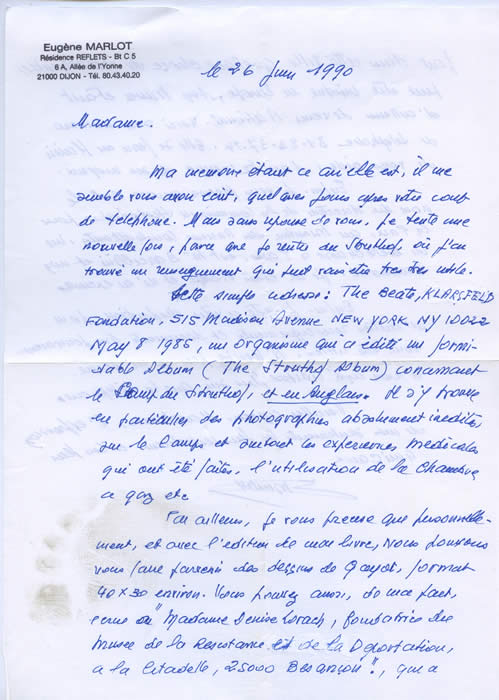 Eugène MARLOT
Résidence REFLETS - Bt C 5
6 A, Allée de l'Yonne
21000 DIJON - Tél. 80.43.40.20
le 26 Juin 1990
Madame.
Ma memoire étant ce qu'elle est, il me
semble vous avoir écrit, quelques jours apres votre coup
de telephone. Mais sans reponse de vous, je tente une
nouvelle fois, parce que je rentre du Struthof, où j'ai
trouvé un renseignement qui peut vous etre tres tres utile.
Cette simple adresse : The Beate, KLARSFELD
Fondation, 515 Madison Avenue NEW YORK NY 10022
May 8 1985, un organisme qui a édité un formi-
dable Album (The Struthof Album) concernant
le Camp du Struthof, et en Anglais. Il s'y trouve
en particulier des photographies absolument inedites,
sur le Camps et surtout les experiences medicales
qui ont été faites, l'utilisation de la chambre
a gaz etc.
Par ailleurs, je vous precise que personnelle-
ment, et avec l'edition de mon livre, nous pouvons
vous faire parvenir des dessins de Gayot, format
40 x 30 environ. Vous pouvez aussi, de ma part,
ecrire à "Madame Denise Lorach, fondatrice du
Musée de la Resistance et de la Déportation,
a la Citadelle, 25000 Besançon", qui a